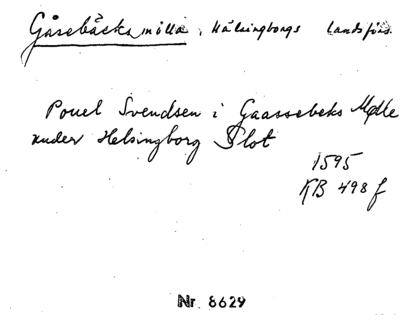 Gåsebäcksmölla, Hälsingborgs landsförs.
Pouel Svendsen i Gaassebeks Mølle
under Helsingborg Slot
1595
KB 498 f
Nr. 8629